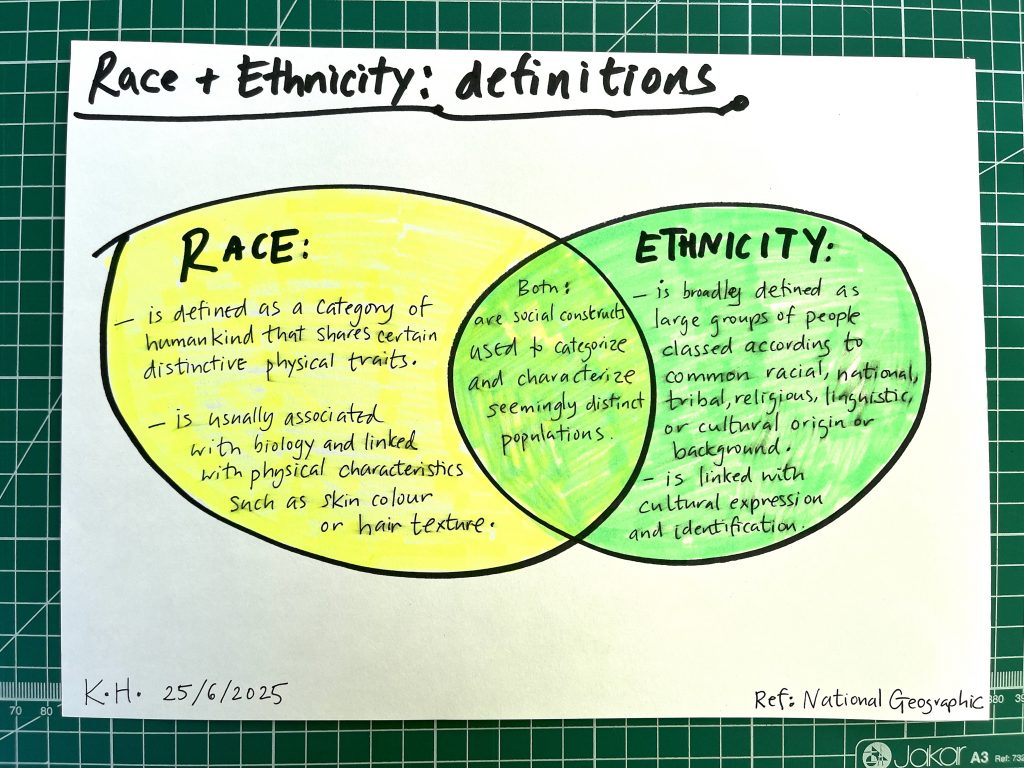 Race + Ethnicity: definitions
RACE:
– is defined as a category of
humankind that shares certain
distinctive physical traits.
– is usually associated
with biology and linked
with physical characteristics
such as skin colour
or hair texture.
Both:
are social constructs
used to categorize
and characterize
seemingly distinct
populations.
ETHNICITY:
– is broadly defined as
large groups of people
classed according to
common racial, national,
tribal, religious, linguistic,
or cultural origin or
background.
– is linked with
cultural expression
and identification.
K.H. 25/6/2025
Ref: National Geographic
70 80
380
Jakar A3 Ref: